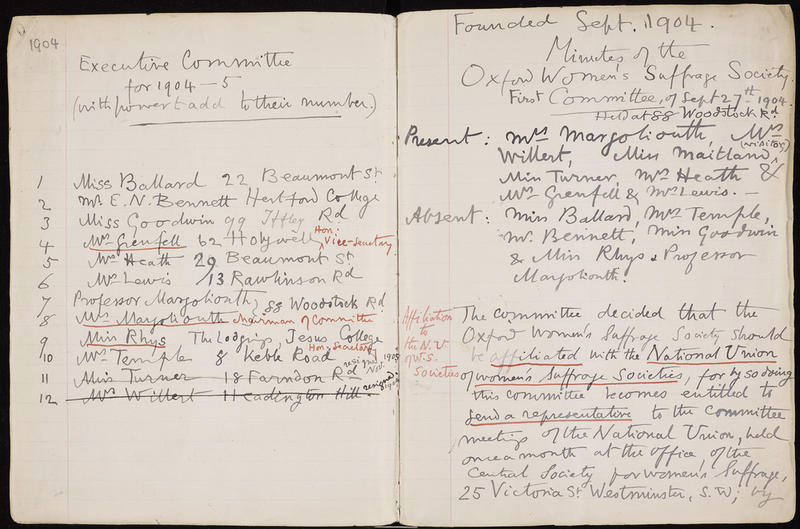 1904
Executive Committee
for 1904-5
(with power to add to their number.)
1 Miss Ballard 22 Beaumont St
2 Mr E.N. Bennett Hertford College
3 Miss Goodwin 99 Iffley Rd
4 Mrs Grenfell 62 Holywell Hon: Vice-Secretary
5 Mrs Heath 29 Beaumont St
6 Mrs Lewis 13 Rawlinson Rd
7 Professor Margoliouth, 88 Woodstock Rd
8 Mrs Margoliouth chairman of Committee
9 Miss Rhys The Lodgings, Jesus College
Hon: Secretary
10 Mrs Temple 8 Keble Road
11 Miss Turner 18 Farndon Rd resigned Nov. 1905
12 Mrs Willert Headington Hill. resigned 1904
Founded Sept. 1904.
Minutes of the
Oxford Women's Suffrage Society.
First Committee, of Sept 27th 1904.
Held at 88 Woodstock Rd
Present: Mrs Margoliouth, Mrs
Willert, Miss Maitland (visitor),
Miss Turner, Mrs Heath &
Mrs Grenfell & Mrs Lewis. —
Absent: Miss Ballard, Mrs Temple,
Mr. Bennett, Miss Goodwin
& Miss Rhys & Professor
Margoliouth.
Affiliation
to
the N.U
of W.S.
Societies
The committee decided that the
Oxford Women's Suffrage Society should
be affiliated with the National Union
of women's Suffrage Societies, for by so doing
this committee becomes entitled to
send a representative to the committee
meetings of the National Union, held
once a month at the office of the
Central Society for women's Suffrage,
25 Victoria St Westminster, S.W; by